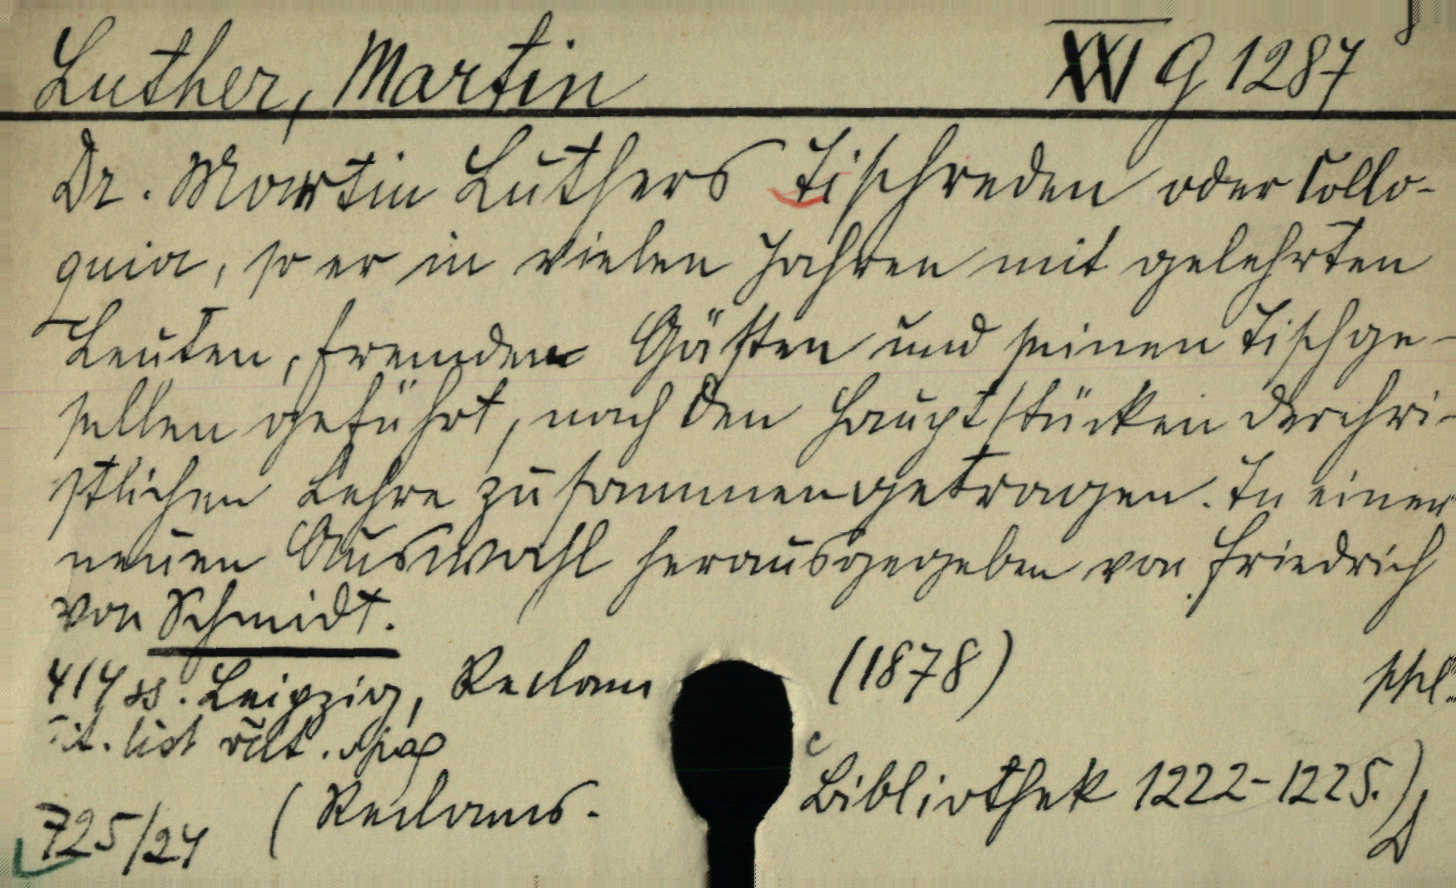 Luther, Martin XVI G 1287
Dr. Martin Luthers Tischreden oder Collo-
quia, so er in vielen Jahren mit gelehrten
Leuten, fremden Gästen und seinen Tischge-
sellen geführt, nach den Hauptstücken der chri-
stlichen Lehre zusammengetragen. In einer
neuen Auswahl herausgegeben von Friedrich
von Schmidt.
414 ss. Leipzig, Reclam (1878)
tit. list
(Reclams. Bibliothek 1222-1225.)
725/24